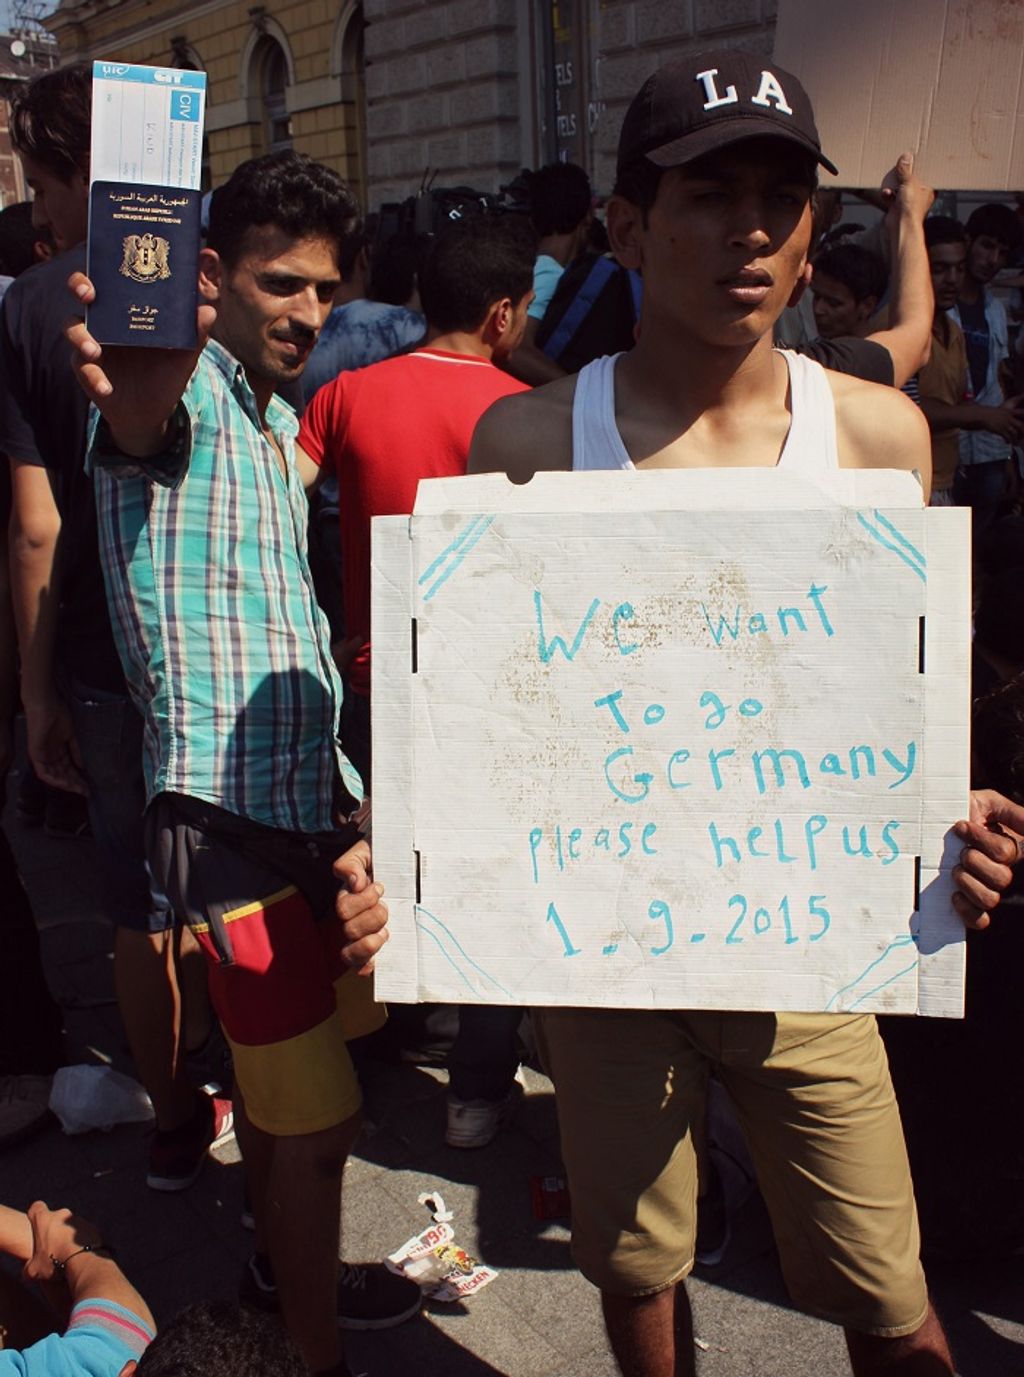 uic
CIT
CIV
الجمهورية العربية السورية
SYRIAN ARAB REPUBLIC
REPUBLIQUE ARABE SYRIENNE
جواز سفر
PASSPORT
PASSEPORT
LA
We want
To go
Germany
please help us
1-9-2015
CHICKEN